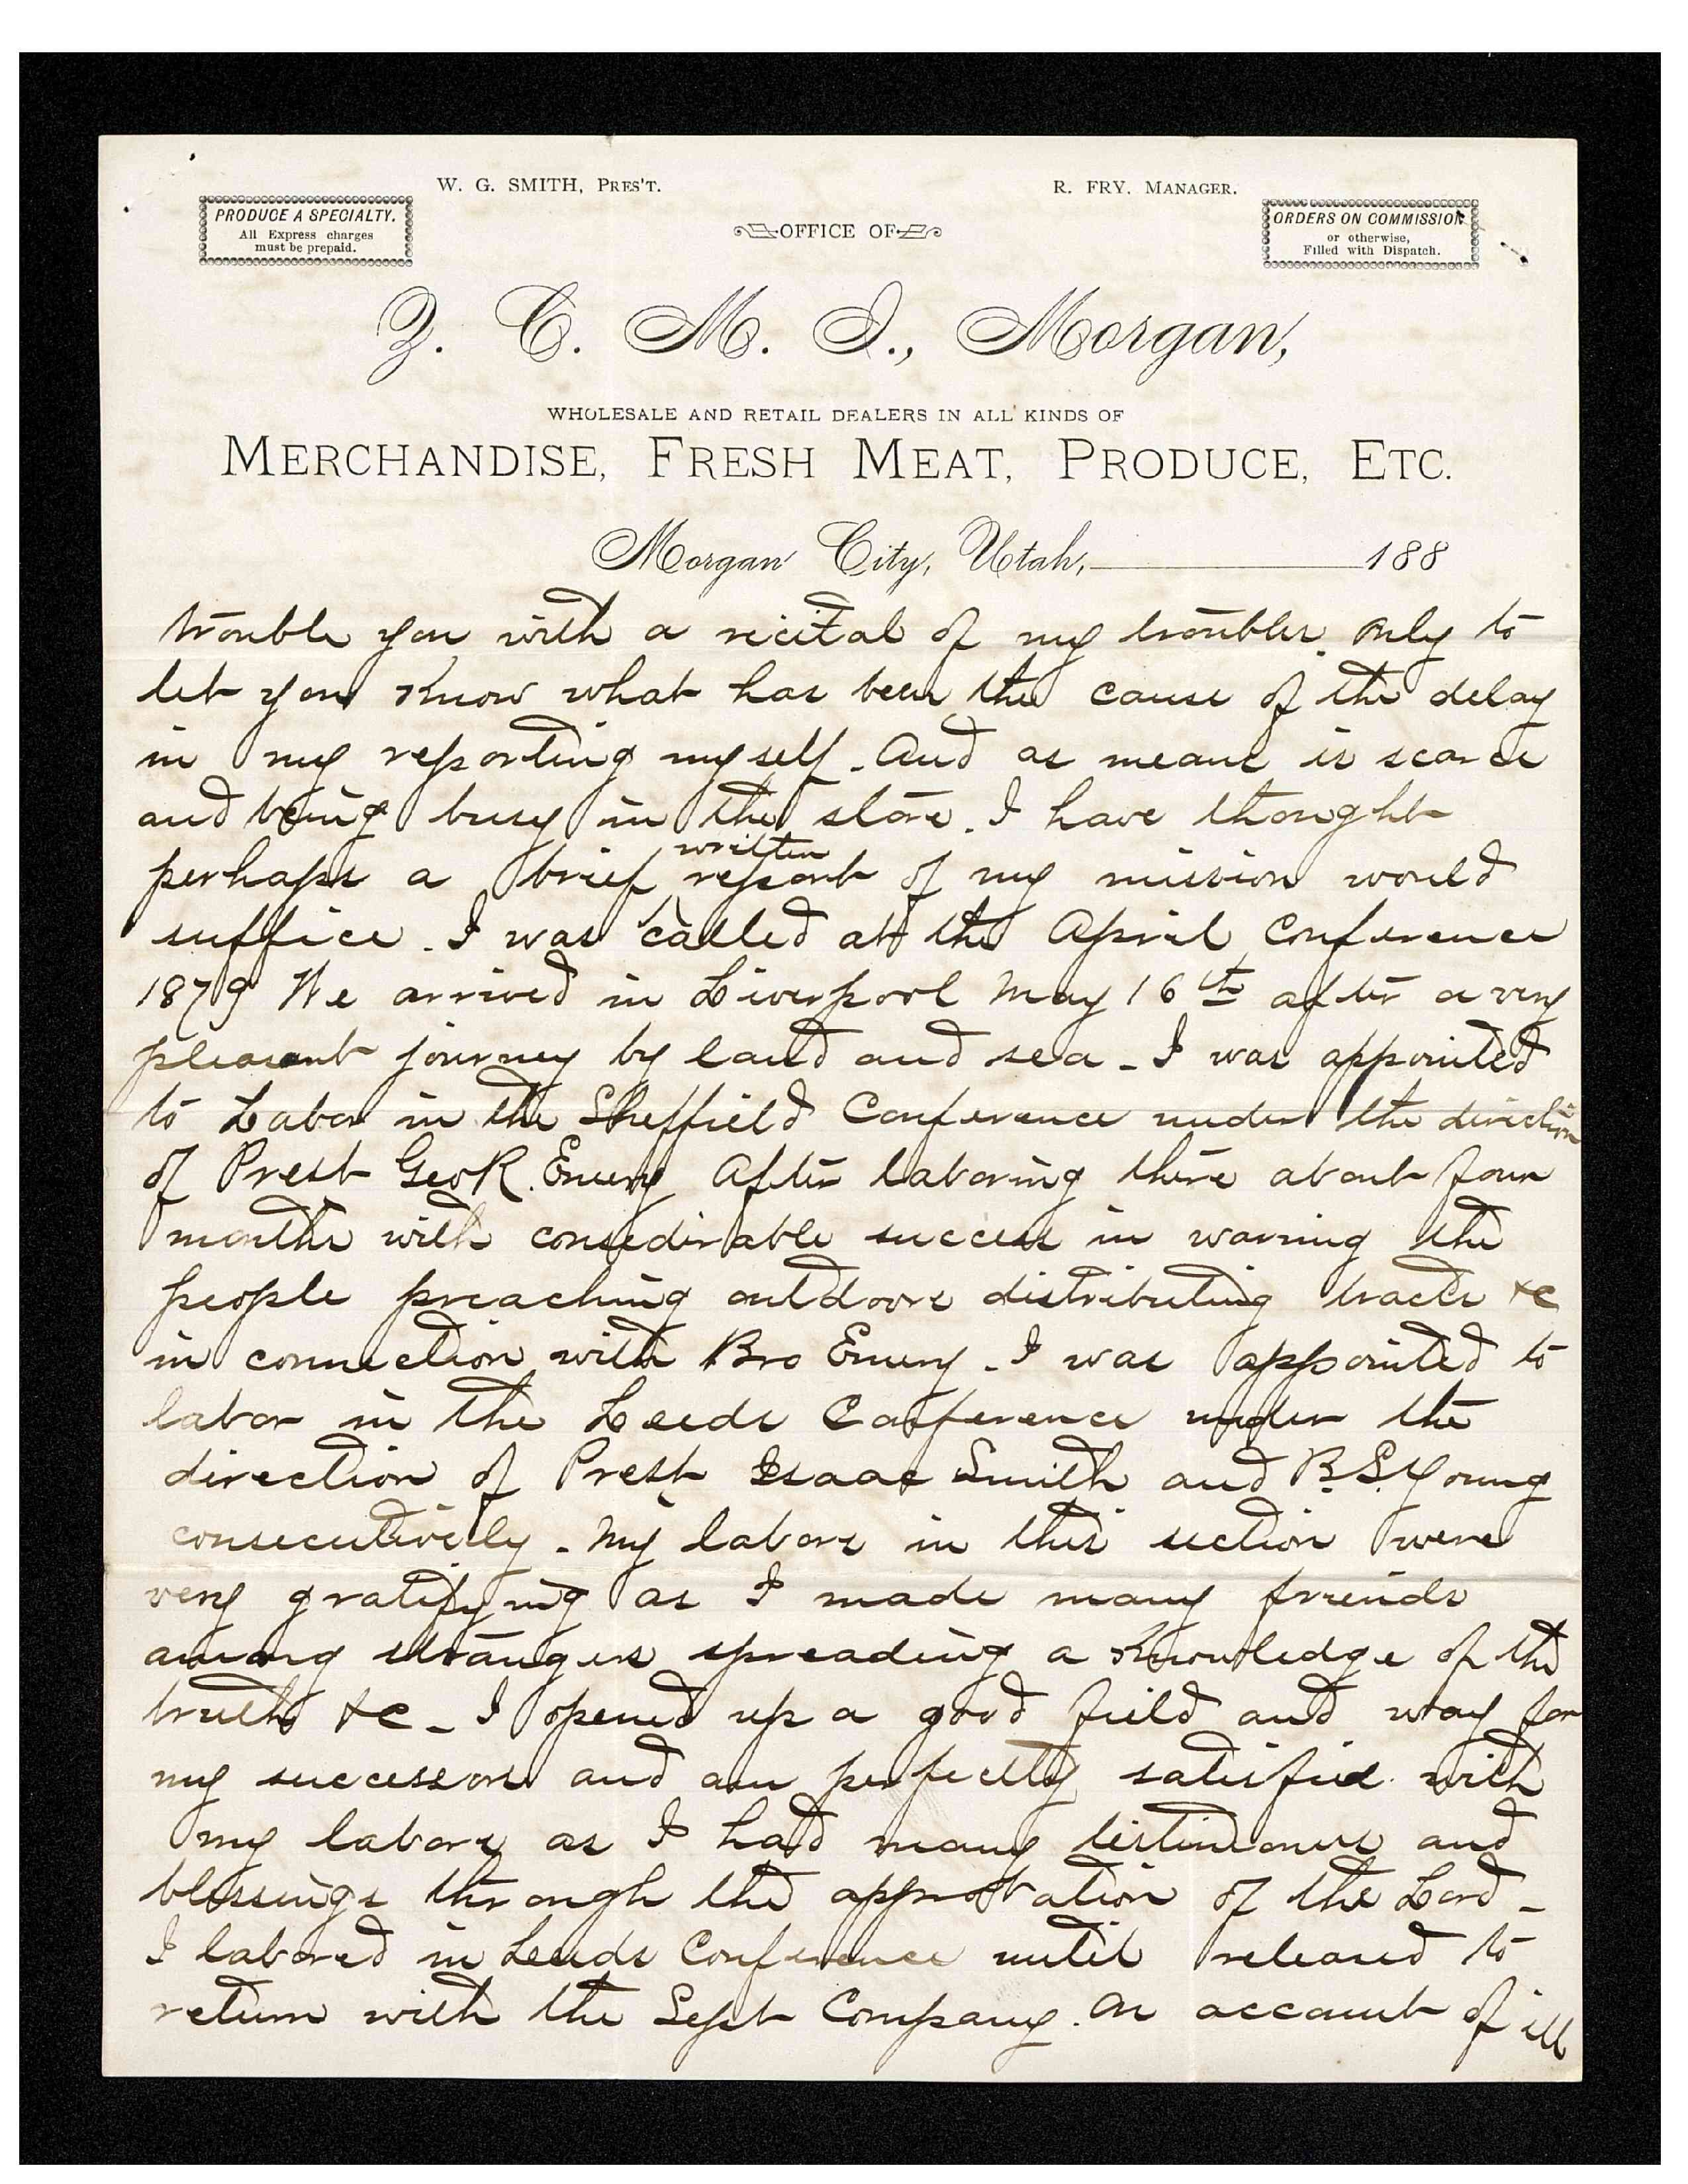 W. G. SMITH, PRES'T.
R. FRY, MANAGER.
PRODUCE A SPECIALTY.
All Express charges
must be prepaid.
OFFICE OF
ORDERS ON COMMISSION
or otherwise,
Filled with Dispatch.
Z. C. M. I., Morgan,
WHOLESALE AND RETAIL DEALERS IN ALL KINDS OF
MERCHANDISE, FRESH MEAT, PRODUCE, ETC.
Morgan City, Utah, 188
trouble you with a recital of my troubles. only to
let you know what has been the cause of the delay
in my reporting myself. And as means is scarce
and being busy in the store. I have thought
written
perhaps a brief report of my mission would
suffice. I was called at the April Conference
1879 We arrived in Liverpool May 16th after a very
pleasant journey by land and sea - I was appointed
to Labor in the Sheffield Conference under the direction
of Prest Geo R. Emery After laboring there about four
months with considerable success in warning the
people preaching outdoors distributing tracts &c
in connection with Bro Emery - I was appointed to
labor in the Leeds Conference under the
direction of Prest Isaac Smith and B. S. Young
consecutively - My labors in this section were
very gratifying as I made many friends
among strangers spreading a knowledge of the
truth &c - I opened up a good field and way for
my successors and am perfectly satisfied with
my labors as I had many testimonies and
blessings through the approbation of the Lord -
I labored in Leeds Conference until released to
return with the Sept Company. On account of ill